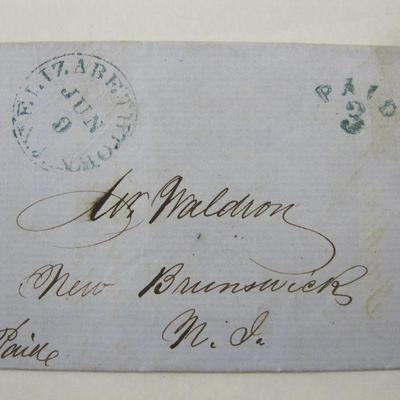 ELIZABETHTOWN
JUN
9
PAID
3
Waldron
New Brunswick
N. J.
Paid